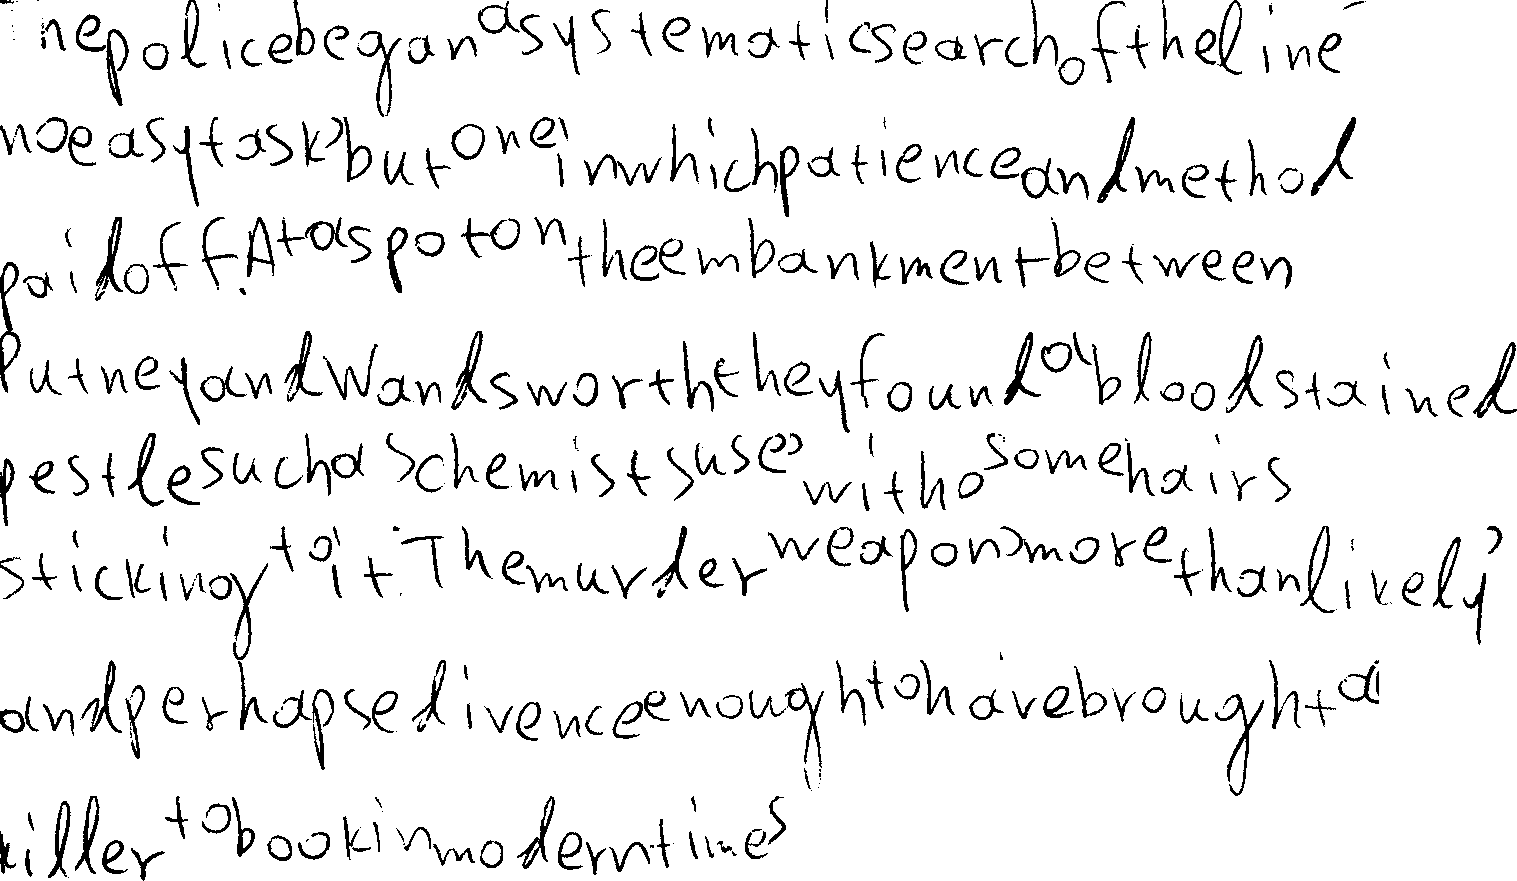 The police began a systematic search of the line
no easy task, but one in which patience and method
paid off. At a spot on the embankment between
Putney and Wandsworth they found a bloodstained
pestle such as chemists use, with some hairs
sticking to it. The murder weapon, more than lively,
and perhaps edivence enough to have brought a
killer to book in modern times